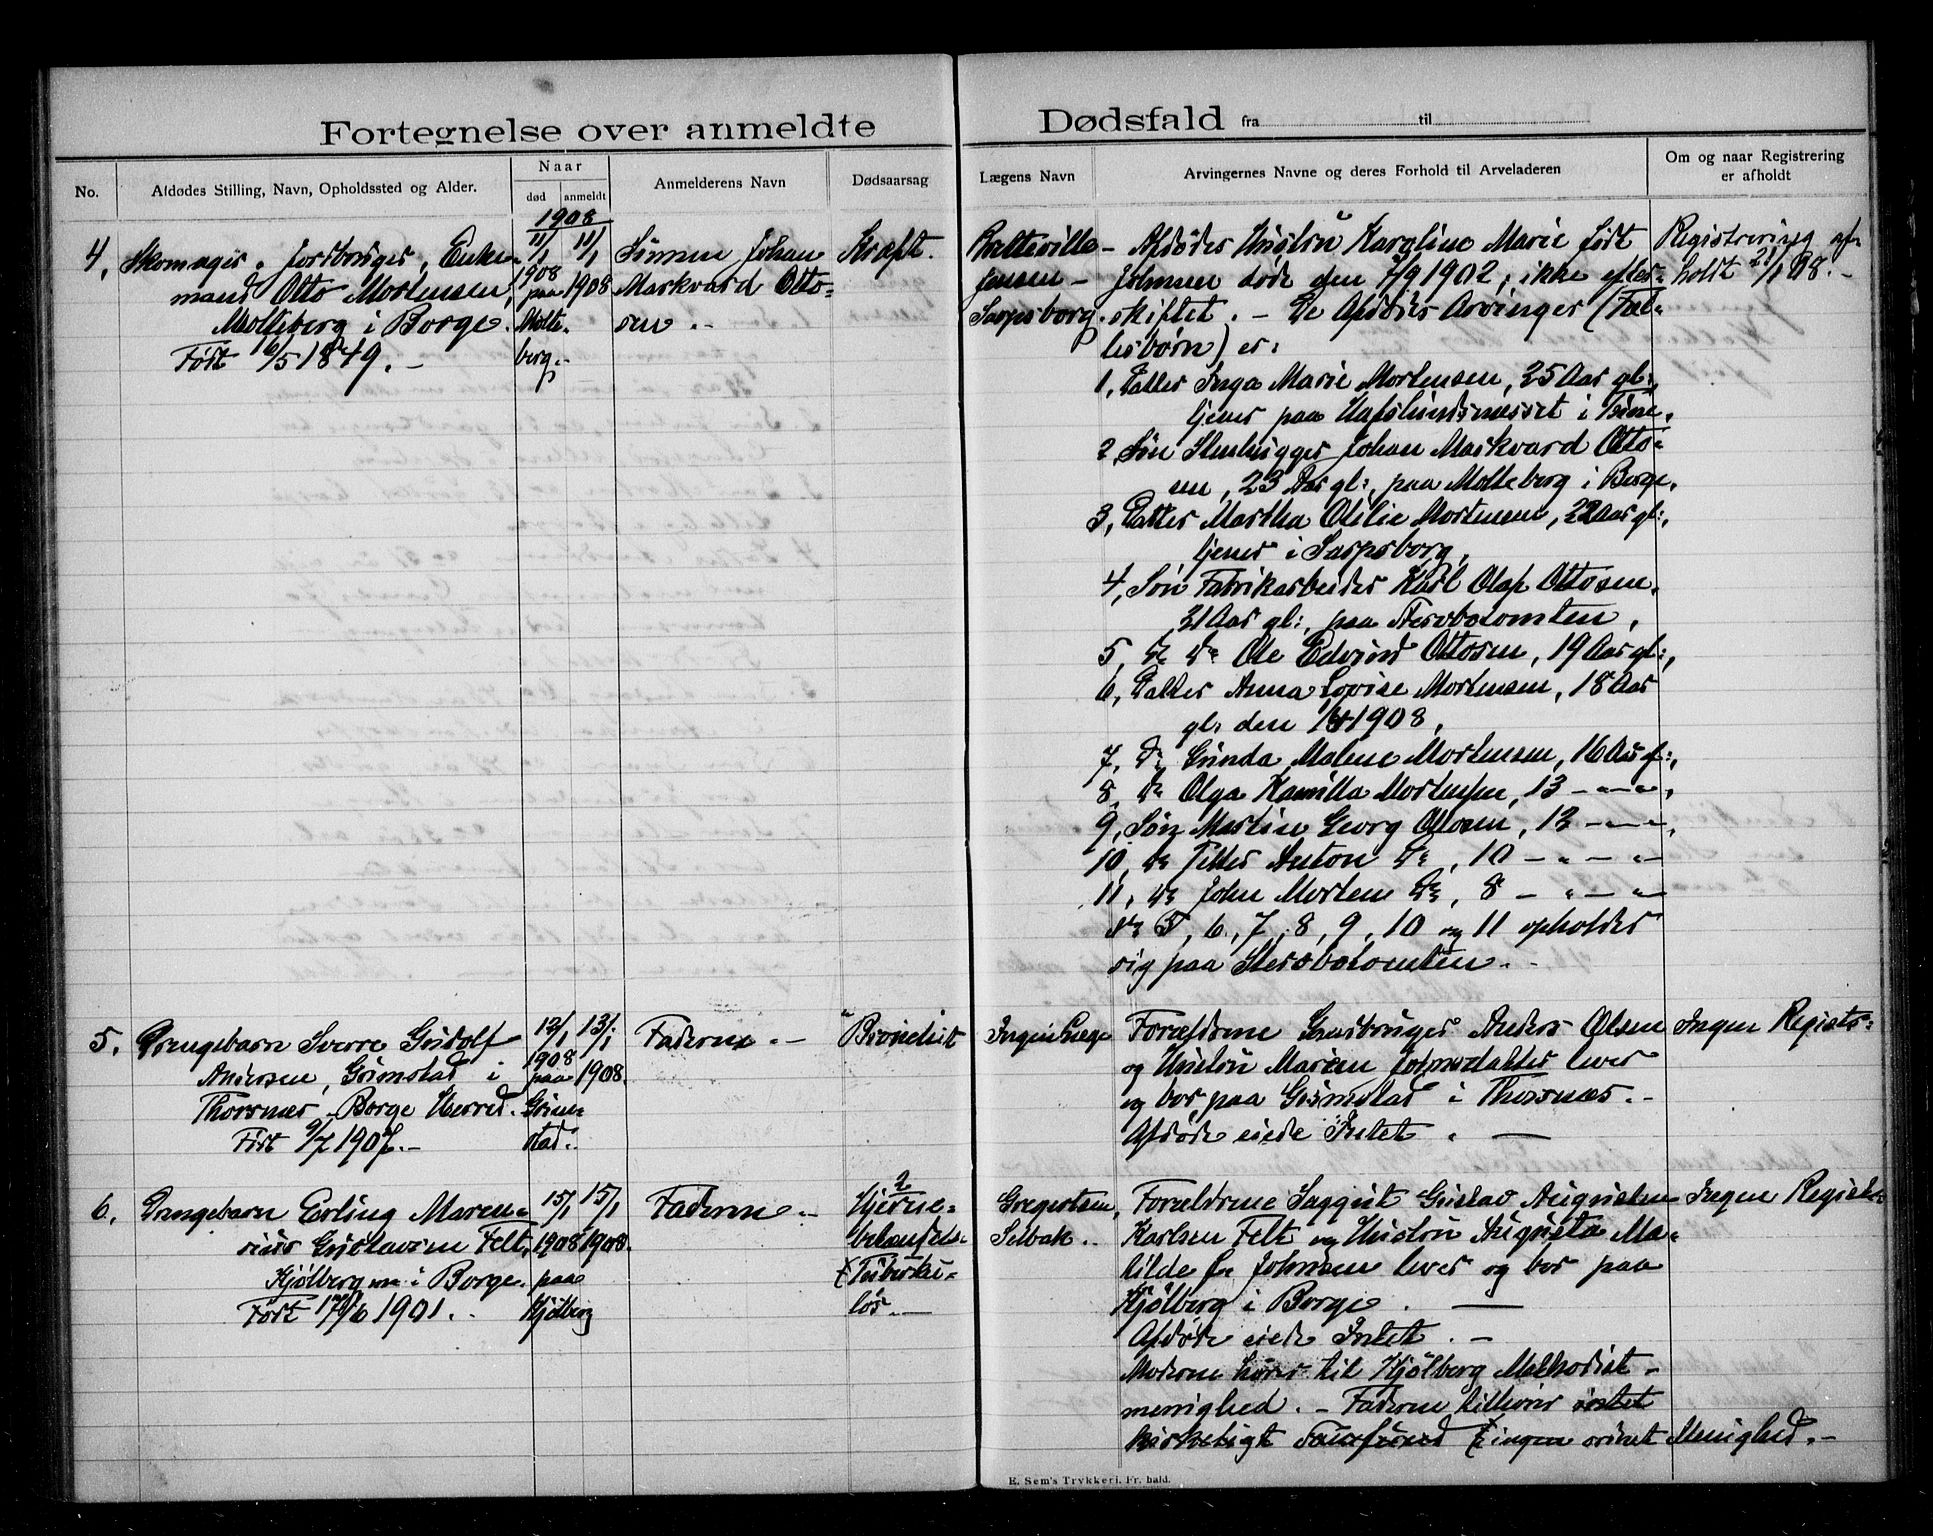 Fortegnelse over anmeldte Dødsfald fra til
No.
Afdødes Stilling, Navn, Opholdssted og Alder.
Naar
død anmeldt
Anmelderens Navn
Dødsaarsag
Lægens Navn
Arvingernes Navne og deres Forhold til Arveladeren
Om og naar Registrering
er afholdt
1908
4, Skomager, Jordbruger, Enke-
mand Otto Mortensen,
Molteberg i Borge.
Født 6/5 1849. -
11/1
1908
paa
Molte-
berg. -
11/1
1908
Sønnen Johan
Markvard Otto-
sen. -
Kræft.
Jensen -
Sarpsborg.
- Afdødes Hustru Karoline Marie født
Johnsen døde den 7/9 1902, ikke efter-
skiftet. - De Afdødes Arvinger (Fæl-
lesbørn) er:
1, Datter Inga Marie Mortensen, 25 Aar gl:,
tjener paa Hafslundsmesset i Tune,
2, Søn Stenhugger Johan Markvard Otto-
sen, 23 Aar gl:, paa Molteberg i Borge,
3, Datter Martha Otilie Mortensen, 22 Aar gl:,
tjener i Sarpsborg,
4, Søn Fabrikarbeider Karl Olaf Ottosen,
21 Aar gl:, paa Stervbotomten,
5, do do Ole Edvind Ottosen, 19 Aar gl:,
6, Datter Anna Lovise Mortensen, 18 Aar
gl: den 1908,
7, do Gunda Malene Mortensen, 16 Aar gl:,
8, do Olga Kamilla Mortensen, 13 - " - " -,
9, Søn Martin Georg Ottosen, 12 - " - " -,
10, do Petter Anton do, 10 - " - " -
11, do John Morten do, 8 - " - " -
No 5, 6, 7, 8, 9, 10 og 11 opholder
sig paa Stervbotomten. -
Registrering af-
holdt 21/1 08. -
5, Drengebarn Sverre Gudolf
Andersen, Grimstad i
Thorsnæs, Borge Herred.
Født 9/7 1907. -
12/1
1908
paa
Grim-
stad.
13/1
1908.
Faderen. -
Ingen Læge
Forældrene Gaardbruger Anders Olsen
og Hustru Maren Johnsdatter lever
og bor paa Grimstad i Thorsnæs. -
Afdøde eiede Intet. -
Ingen Registr:
6, Drengebarn Erling Maren-
sius Gustavsen Felt,
Kjølberg i Borge.
Født 17/6 1901. -
15/1
1908
paa
Kjølberg
15/1
1908.
Faderen. -
2
Hjerne-
betændelse
(Tuberku-
løs. -
Gregertsen,
Selbak. -
Forældrene Gustav Augustin
Karlsen Felt og Hustru Augusta Ma-
tilde f. Johnsen lever og bor paa
Kjølberg i Borge. -
Afdøde eiede Intet. -
Moderen hører til Kjølberg Methodist-
menighed. - Faderen tilhører intet
kirkeligt Samfund (: ingen ordnet Menighed. -
Ingen Registr:
E. Sem's Trykkeri, Fr. hald.